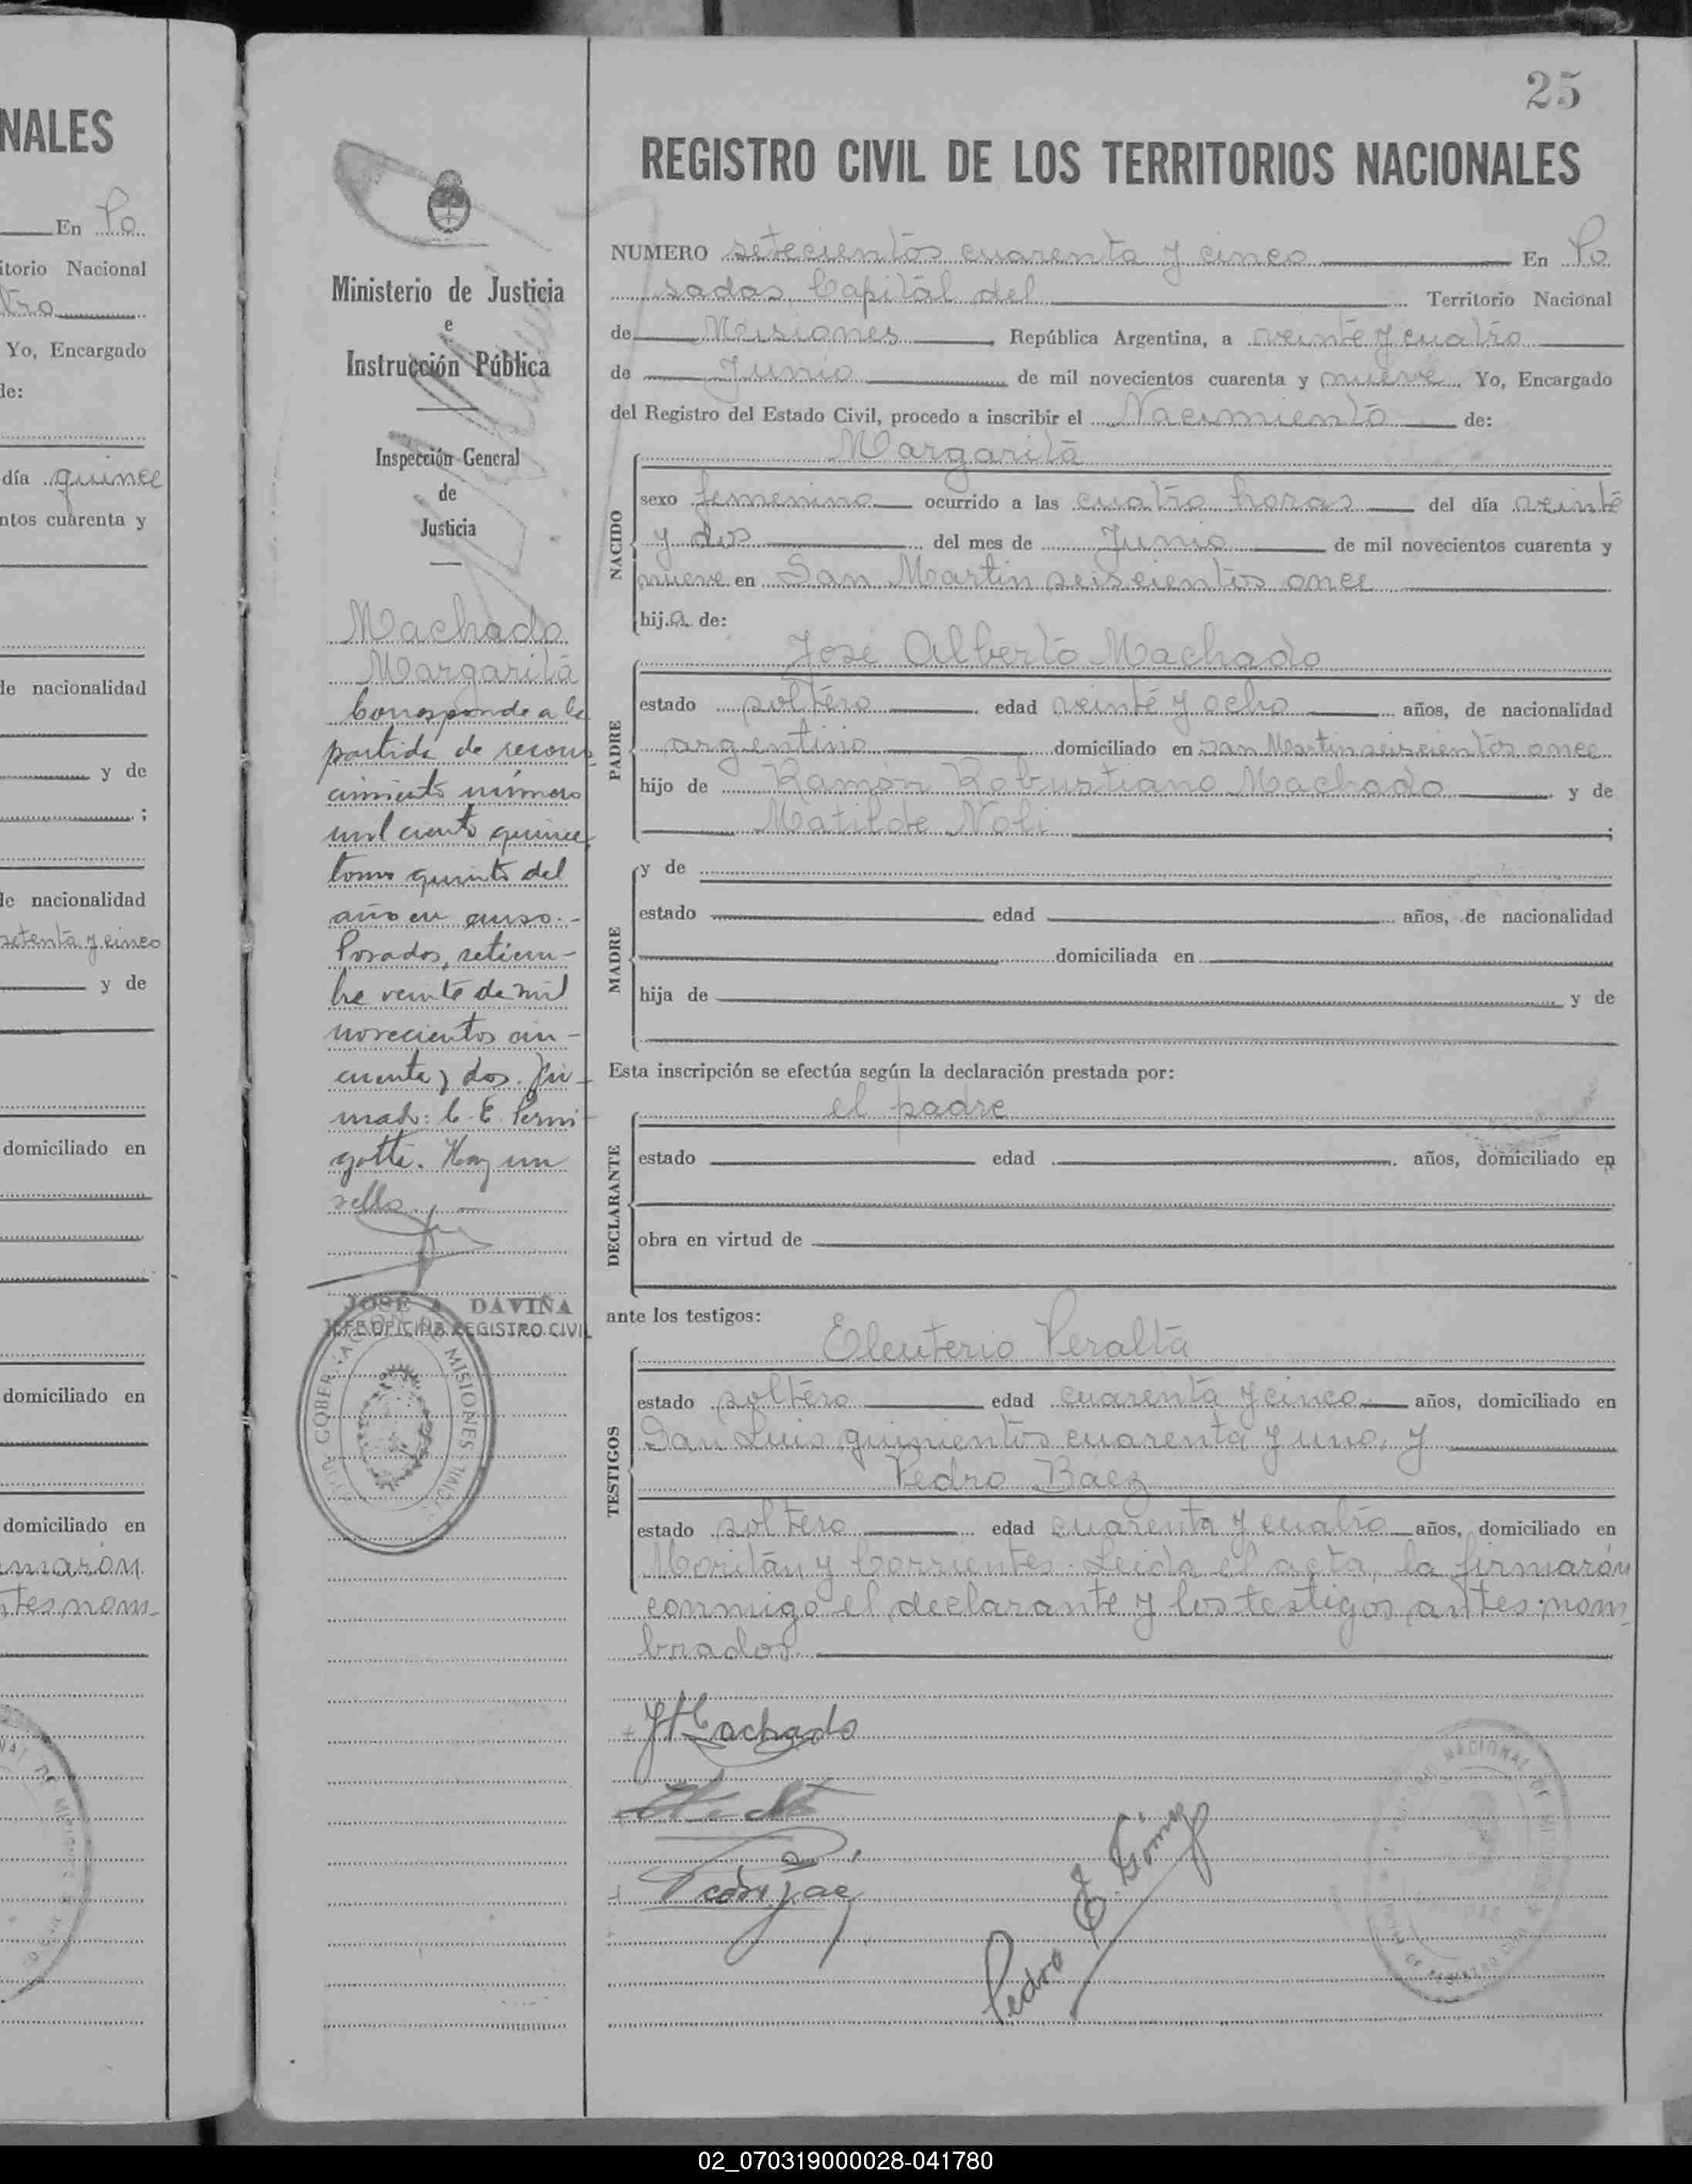 NALES
En Po
itorio Nacional
Yo, Encargado
de:
día quince
ntos cuarenta y
de nacionalidad
y de
;
de nacionalidad
setenta y cinco
y de
domiciliado en
domiciliado en
domiciliado en
maron
tes nom-
25
Ministerio de Justicia
e
Instrucción Pública
Inspección General
de
Justicia
Machado
Margarita
Corresponde a la
partida de recono
cimiento número
mil ciento quince
tomo quinto del
año en curso.-
Posadas, setiem-
bre veinte de mil
novecientos cin-
cuenta y dos. Fir-
mado: C. E. Permi-
gotti. Hay un
sello.
JOSE A. DAVIÑA
JEFE OFICINA REGISTRO CIVIL
GOBERNACION DE MISIONES
REGISTRO CIVIL DE LOS TERRITORIOS NACIONALES
NUMERO setecientos cuarenta y cinco En Po
sadas, Capital del Territorio Nacional
de Misiones República Argentina, a veinte y cuatro
de Junio de mil novecientos cuarenta y nueve Yo, Encargado
del Registro del Estado Civil, procedo a inscribir el Nacimiento de:
NACIDO
Margarita
sexo femenino ocurrido a las cuatro horas del día veinte
y dos del mes de Junio de mil novecientos cuarenta y
nueve en San Martin seiscientos once
hija de:
PADRE
José Alberto Machado
estado soltero edad veinte y ocho años, de nacionalidad
argentino domiciliado en San Martin seiscientos once
hijo de Ramón Robustiano Machado y de
Matilde Noli ;
MADRE
y de
estado edad años, de nacionalidad
domiciliada en
hija de y de
Esta inscripción se efectúa según la declaración prestada por:
DECLARANTE
el padre
estado edad años, domiciliado en
obra en virtud de
ante los testigos:
TESTIGOS
Eleuterio Peralta
estado soltero edad cuarenta y cinco años, domiciliado en
San Luis quinientos cuarenta y uno, y
Pedro Baez
estado soltero edad cuarenta y cuatro años, domiciliado en
y Corrientes. Leida el acta, la firmarón
conmigo el declarante y los testigos antes nom
brados.
J A Machado
Pedro E. Gómez
02_070319000028-041780